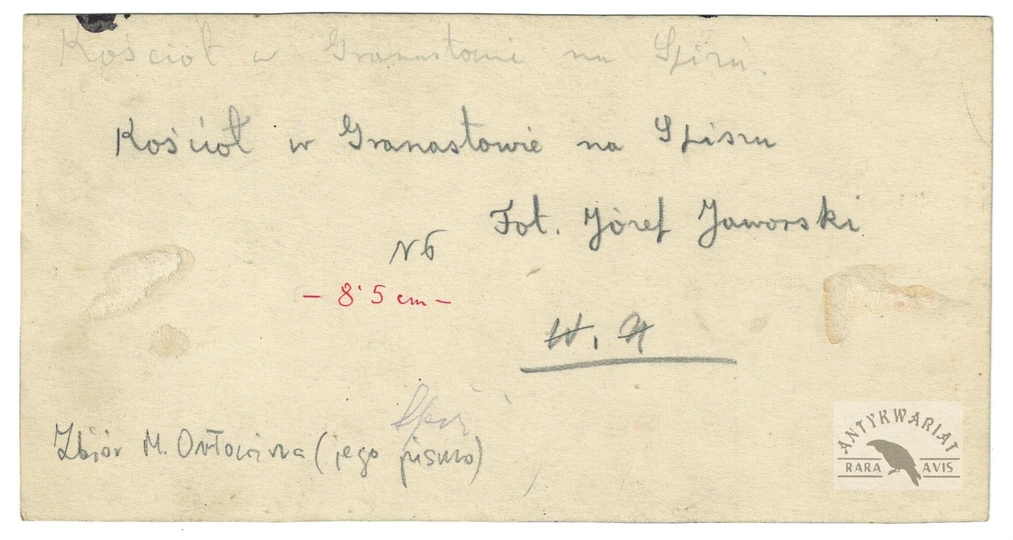 Kościół w Granastowie na Spiszu.
Kościół w Granastowie na Spiszu
Fot. Józef Jaworski
N 6
- 8'5 cm -
Zbiór M. Orłowicza (jego pismo)
ANTYKWARIAT
RARA AVIS